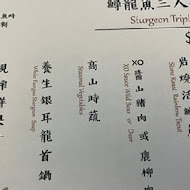 鱘龍魚三人
Sturgeon Tripl
$
岩燒活
Rainbow Trout
XO醬山豬肉或鹿柳
XO Sauce Wild Boar or Deer
高山時蔬
Seasonal Vegetables
養生銀耳龍首鍋
White Fungus Sturgeon Soup
魚時